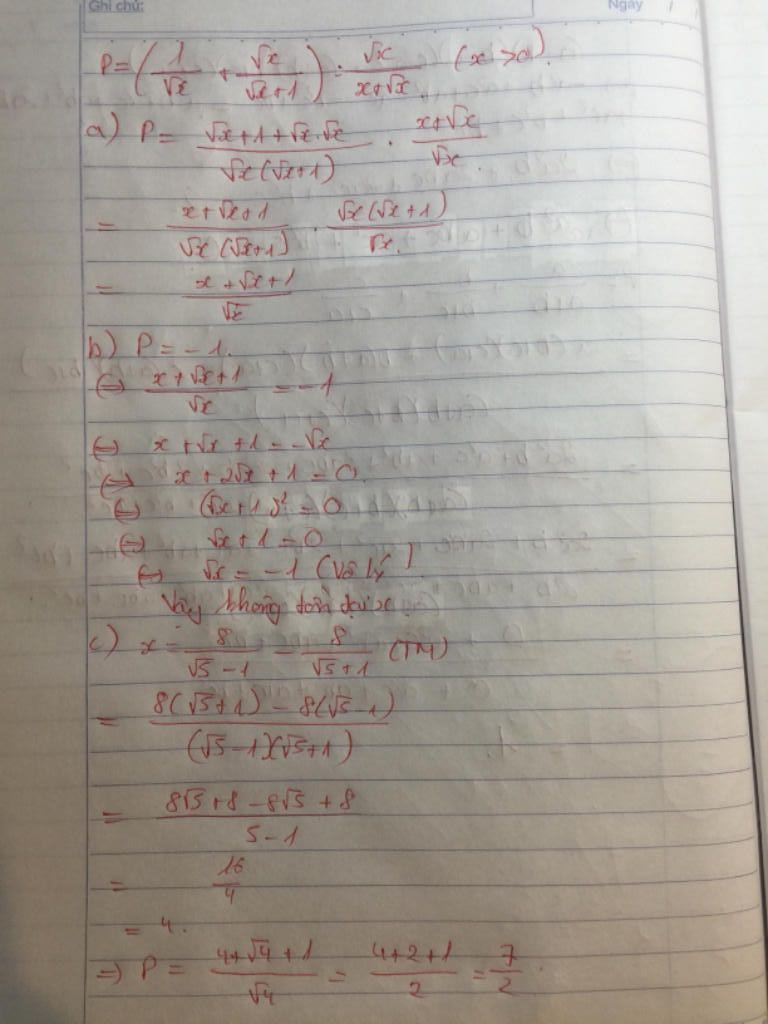 Ghi chú: Ngày / /
P = (1/√x + √x/(√x+1)) : √x/(x+√x) (x > 0).
a) P = (√x+1+√x.√x)/(√x(√x+1)) . (x+√x)/√x
= (x+√x+1)/(√x(√x+1)) . √x(√x+1)/√x
= (x+√x+1)/√x
b) P = -1.
⇔ (x+√x+1)/√x = -1
⇔ x+√x+1 = -√x
⇔ x+2√x+1 = 0
⇔ (√x+1)² = 0
⇔ √x+1 = 0
⇔ √x = -1 (Vô lý)
Vậy không x
c) x = 8/(√5-1) - 8/(√5+1) (TM)
= (8(√5+1) - 8(√5-1))/((√5-1)(√5+1))
= (8√5+8-8√5+8)/(5-1)
= 16/4
= 4.
⇒ P = (4+√4+1)/√4 = (4+2+1)/2 = 7/2.